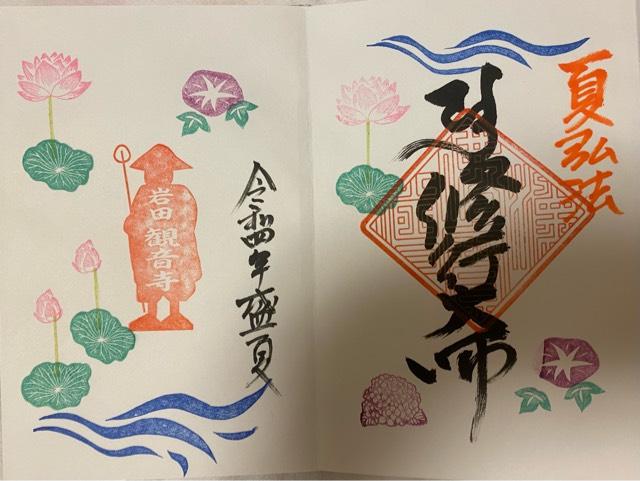 夏弘法
修行大師
令和四年盛夏
岩田
観音寺